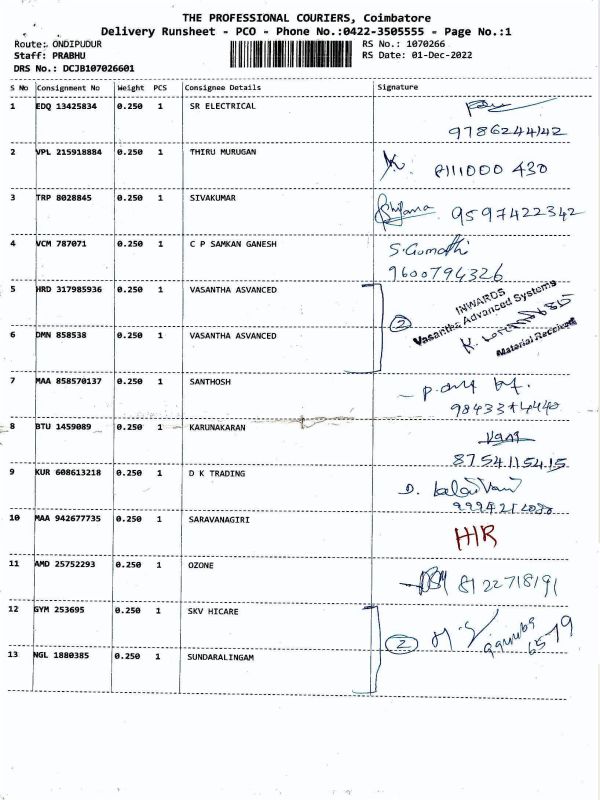 THE PROFESSIONAL COURIERS, Coimbatore
Delivery Runsheet - PCO - Phone No.:0422-3505555 - Page No.:1
Route: ONDIPUDUR
RS No.: 1070266
Staff: PRABHU
RS Date: 01-Dec-2022
DRS No.: DCJB107026601
S No Consignment No Weight PCS Consignee Details Signature
1 EDQ 13425834 0.250 1 SR ELECTRICAL
9786244142
2 VPL 215918884 0.250 1 THIRU MURUGAN
8111000 430
3 TRP 8028845 0.250 1 SIVAKUMAR
9597422342
4 VCM 787071 0.250 1 C P SAMKAN GANESH S. Gomathi
9600794326
5 HRD 317985936 0.250 1 VASANTHA ASVANCED
INWARDS
Vasantha Advanced Systems
Material Received
2
6 DMN 858538 0.250 1 VASANTHA ASVANCED
7 MAA 858570137 0.250 1 SANTHOSH
8 BTU 1459089 0.250 1 KARUNAKARAN
8754115415
9 KUR 608613218 0.250 1 D K TRADING
10 MAA 942677735 0.250 1 SARAVANAGIRI
H/R
11 AMD 25752293 0.250 1 OZONE
8122718191
12 GYM 253695 0.250 1 SKV HICARE
2
13 NGL 1880385 0.250 1 SUNDARALINGAM